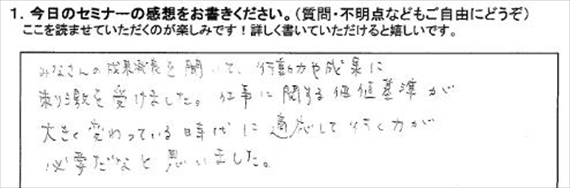 1. 今日のセミナーの感想をお書きください。（質問・不明点などもご自由にどうぞ）
ここを読ませていただくのが楽しみです！詳しく書いていただけると嬉しいです。
みなさんの成果発表を聞いて、行動力や成果に
刺激を受けました。仕事に関する価値基準が
大きく変わっている時代に適応して行く力が
必要だなと思いました。